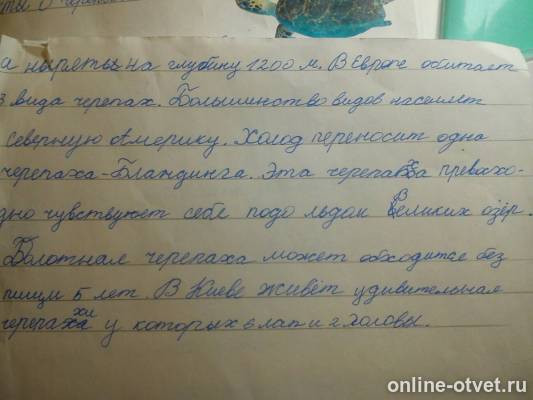 а нырять на глубину 1200 м. В Европе обитает
3 вида черепах. Большинство видов населяет
северную Америку. Холод переносит одна
черепаха-Бландинга. Эта черепаха превосхо-
дно чувствует себе подо льдом Великих озёр.
Болотная черепаха может обходится без
пищи 5 лет. В Киеве живёт удивительная
черепахи у которых 6 лап и 2 головы.
online-otvet.ru